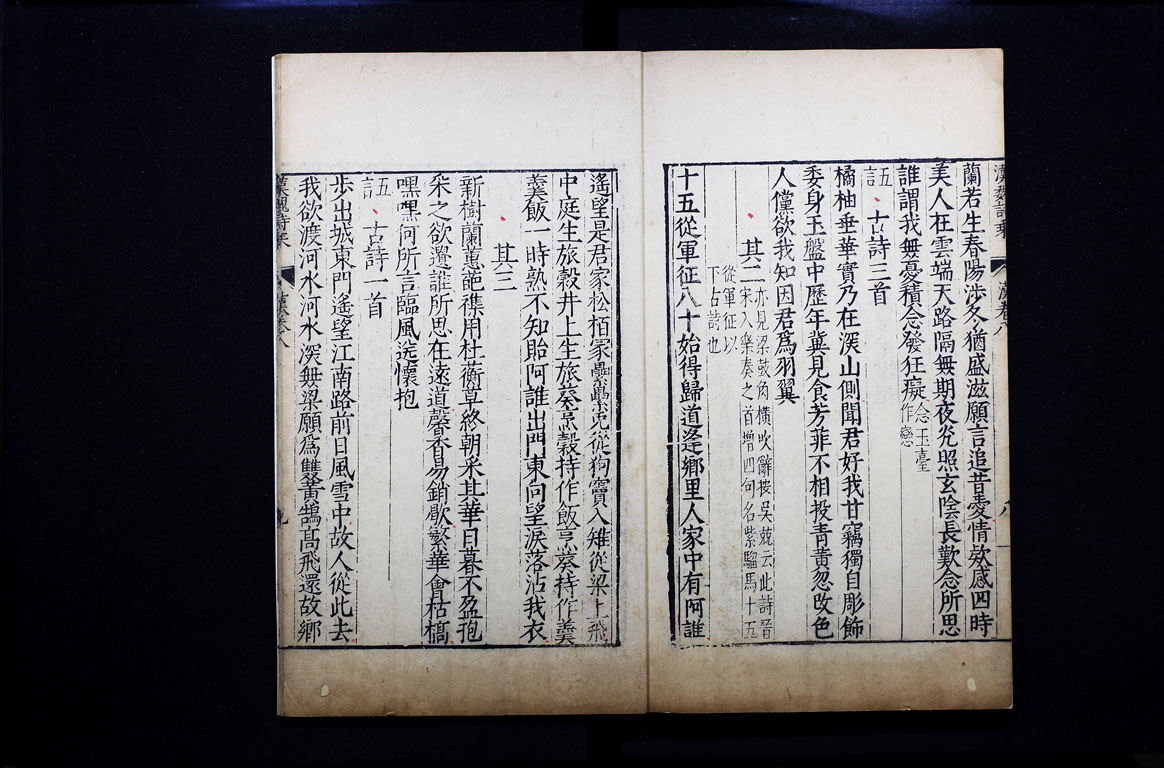 漢魏詩乗 漢卷八 八
蘭若生春陽涉冬猶盛滋願言追昔愛情欵感四時
美人在雲端天路隔無期夜光照玄陰長歎念所思
誰謂我無憂積念發狂癡念玉臺作戀
五言古詩三首
橘柚垂華實乃在深山側聞君好我甘竊獨自彫飾
委身玉盤中歷年冀見食芳菲不相投青黄忽改色
人儻欲我知因君爲羽翼
其二亦見梁鼓角橫吹辭按吳兢云此詩晉
宋入樂奏之首增四句名紫騮馬十五
從軍征以
下古詩也
十五從軍征八十始得歸道逢鄉里人家中有阿誰
遙望是君家松栢冢纍纍兎從狗竇入雉從梁上飛
中庭生旅穀井上生旅葵烹穀持作飯烹葵持作羹
羹飯一時熟不知貽阿誰出門東向望淚落沾我衣
其三
新樹蘭蕙葩襍用杜蘅草終朝采其華日暮不盈抱
采之欲遺誰所思在遠道馨香易銷歇繁華會枯槁
嘿嘿何所言臨風送懷抱
五言古詩一首
步出城東門遙望江南路前日風雪中故人從此去
我欲渡河水河水深無梁願爲雙黃鵠高飛還故鄉